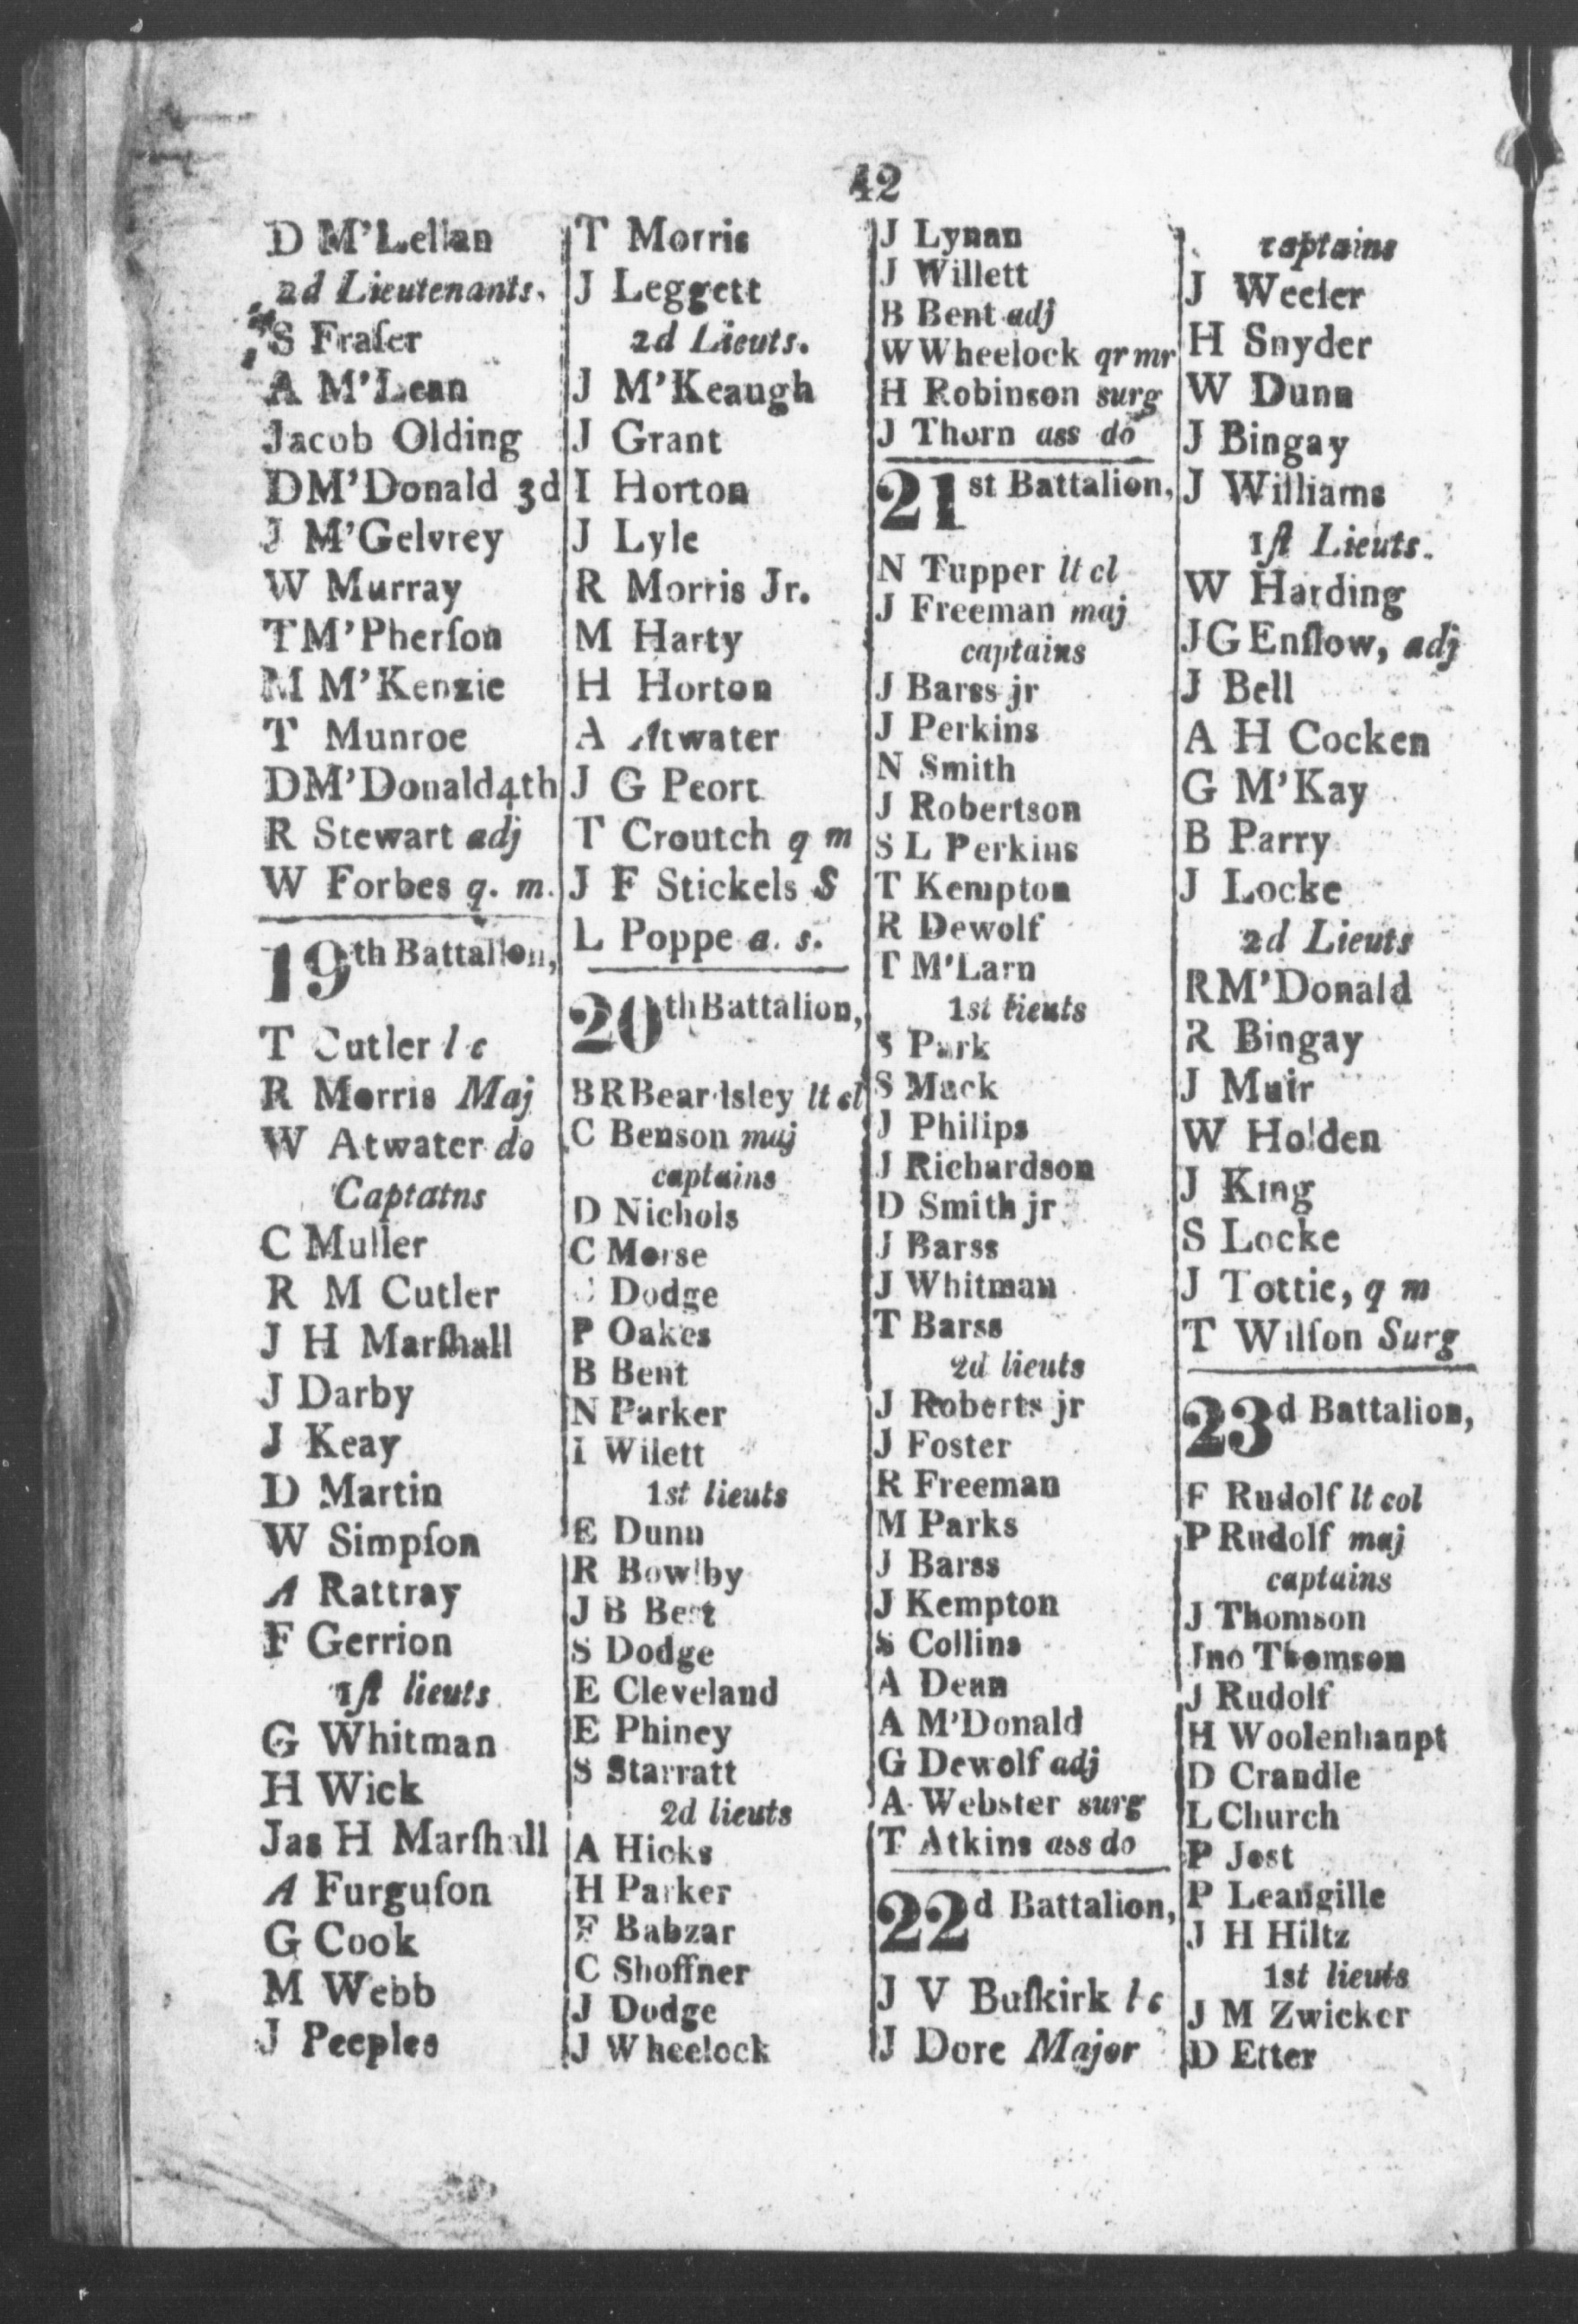 42
D M'Lellan
2d Lieutenants.
S Fraſer
A M'Lean
Jacob Olding
D M'Donald 3d
J M'Gelvrey
W Murray
T M'Pherſon
M M'Kenzie
T Munroe
D M'Donald 4th
R Stewart adj
W Forbes q. m.
19th Battalion,
T Cutler l c
R Morris Maj
W Atwater do
Captatns
C Muller
R M Cutler
J H Marſhall
J Darby
J Keay
D Martin
W Simpſon
A Rattray
F Gerrion
1ſt lieuts
G Whitman
H Wick
Jas H Marſhall
A Furguſon
G Cook
M Webb
J Peeples
T Morris
J Leggett
2d Lieuts.
J M'Keaugh
J Grant
I Horton
J Lyle
R Morris Jr.
M Harty
H Horton
A Atwater
J G Peort
T Croutch q m
J F Stickels S
L Poppe a. s.
20th Battalion,
B R Beardsley lt cl
C Benson maj
captains
D Nichols
C Morse
Dodge
P Oakes
B Bent
N Parker
I Wilett
1st lieuts
E Dunn
R Bowlby
J B Best
S Dodge
E Cleveland
E Phiney
S Starratt
2d lieuts
A Hicks
H Parker
F Babzar
C Shoffner
J Dodge
J Wheelock
J Lynan
J Willett
B Bent adj
W Wheelock qr mr
H Robinson surg
J Thorn ass do
21st Battalion,
N Tupper lt cl
J Freeman maj
captains
J Barss jr
J Perkins
N Smith
J Robertson
S L Perkins
T Kempton
R Dewolf
T M'Larn
1st lieuts
S Park
S Mack
J Philips
J Richardson
D Smith jr
J Barss
J Whitman
T Barss
2d lieuts
J Roberts jr
J Foster
R Freeman
M Parks
J Barss
J Kempton
S Collins
A Dean
A M'Donald
G Dewolf adj
A Webster surg
T Atkins ass do
22d Battalion,
J V Buſkirk l c
J Dore Major
captains
J Weeler
H Snyder
W Dunn
J Bingay
J Williams
1ſt Lieuts.
W Harding
J G Enſlow, adj
J Bell
A H Cocken
G M'Kay
B Parry
J Locke
2d Lieuts
R M'Donald
R Bingay
J Muir
W Holden
J King
S Locke
J Tottie, q m
T Wilſon Surg
23d Battalion,
F Rudolf lt col
P Rudolf maj
captains
J Thomson
Jno Thomson
J Rudolf
H Woolenhanpt
D Crandle
L Church
P Jost
P Leangille
J H Hiltz
1st lieuts
J M Zwicker
D Etter